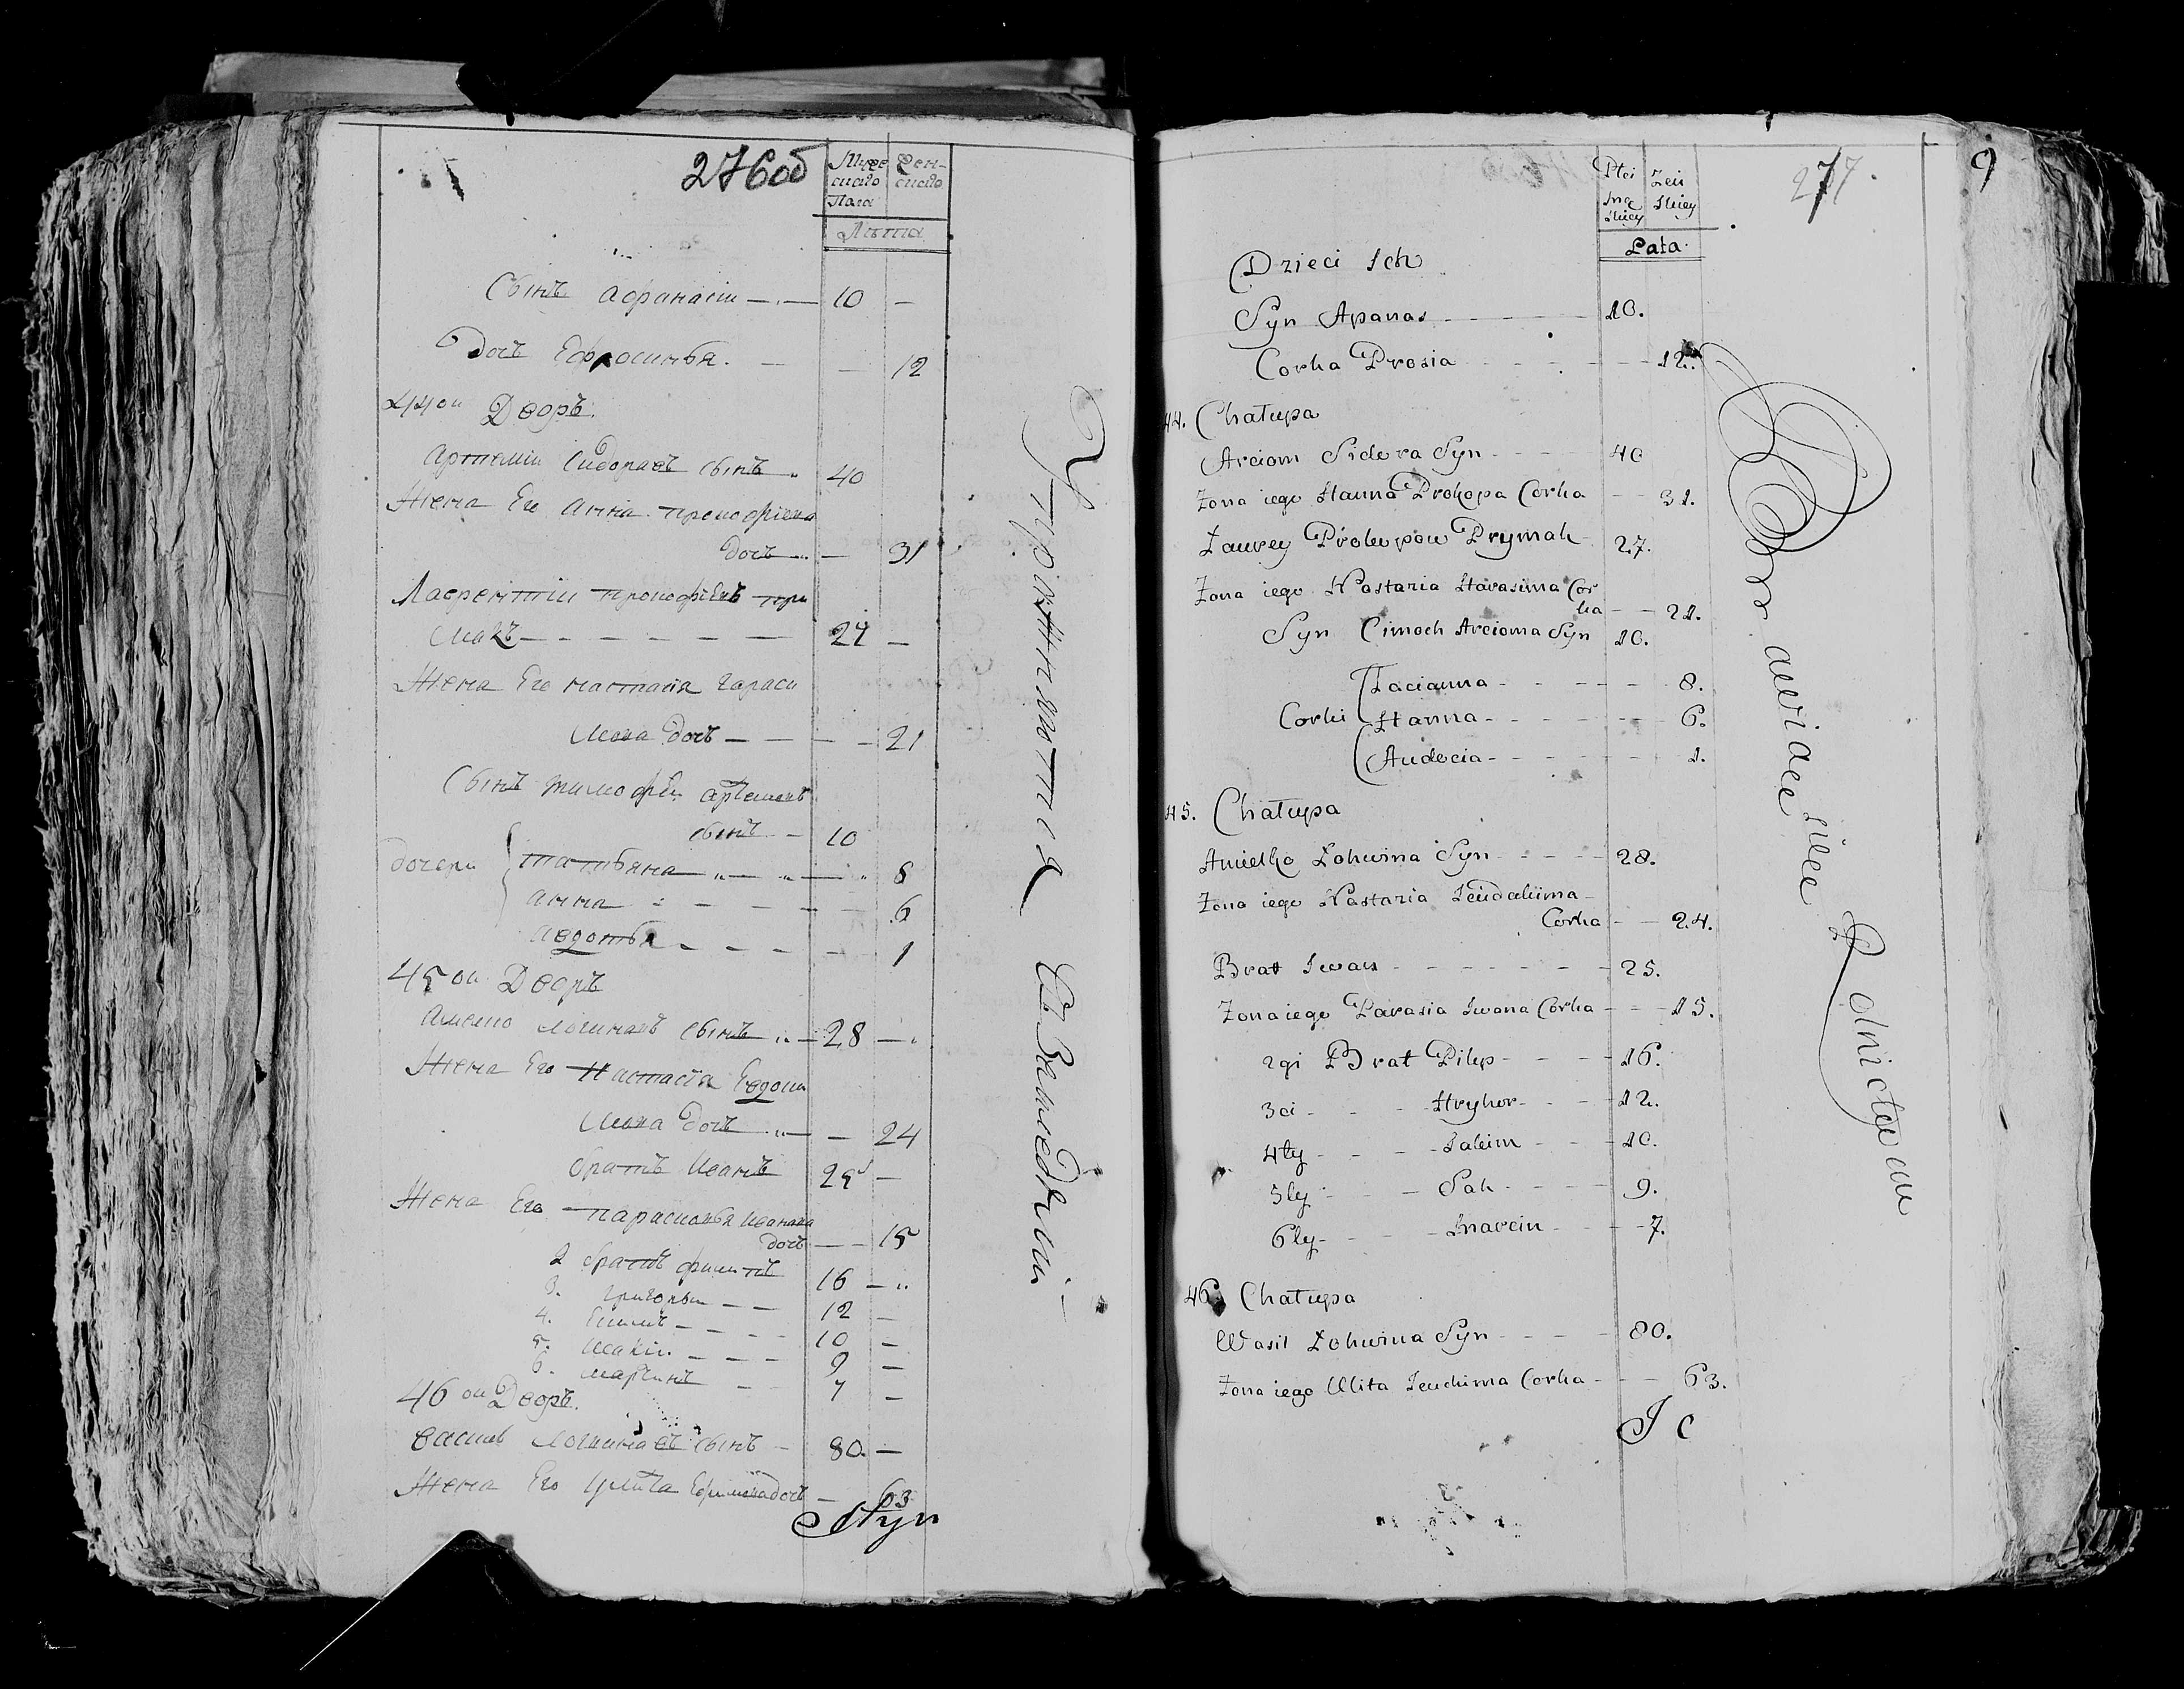 276об
Муже Жен-
скаго скаго
Пола
Лѣта
Сынъ Афанасіи — 10 —
Дочь Ефросинья. — — 12
44ои Дворъ.
Артемии Сидоравъ сынъ 40
Жена Его Анна прокофіева
дочь — 31
Лаврентіи прокофіевъ при
макъ — — — — — — 27 —
Жена Его настасія гараси
мова дочь — — — 21
Сынъ тимофеи артемавъ
сынъ — 10
дочери татьяна — — — 8
анна — — — — — 6
авдотья — — — — 1
45ои Дворъ
Амелко логинавъ сынъ — 28 —
Жена Его Настасія Евдоки
мова дочь — — 24
братъ Иванъ 25 —
Жена Его парасковья Иванава
дочь — — 15
2 братъ филипъ 16 —
3. григореи — — 12 —
4. Екимъ — — — — 10 —
5. Исакіи. — — — 9 —
6. мартинъ — — 7 —
46ои Дворъ.
василеи логинавъ сынъ — 80. —
Жена Его улита Ефимовадочь — 63
Styn
277.
9
Płci Żeń
męskiey skiey
Lata.
Dzieci Ich
Syn Apanas - - - - - 10.
Corka Prosia - - - - - - 12.
44. Chałupa
Arciom Sidora Syn - - - - 40
Zona iego Hanna Prokopa Corka - - 31.
Ławrey Prokopow Prymak - 27.
Zona iego Nastazia Harasima Cor
ka - - 21.
Syn Cimoch Arcioma Syn 10.
Corki Tacianna - - - - - - 8.
Hanna - - - - - - 6.
Audocia - - - - - - 1.
45. Chałupa
Amielko Łohwina Syn - - - - 28.
Zona iego Nastazia Jeudakima -
Corka - - 24.
Brat Iwan - - - - - - - 25.
Zona iego Parasia Iwana Corka - - - 15.
2gi Brat Pilip - - - - 16.
3ci - - - - Hryhor - - - - 12.
4ty - - - - Jakim - - - 10.
5ty - - - - Sak - - - - 9.
6ty - - - - Marcin - - - - 7.
46. Chałupa
Wasil Łohwina Syn - - - - 80.
Zona iego Ulita Jeuchima Corka - - - 63.